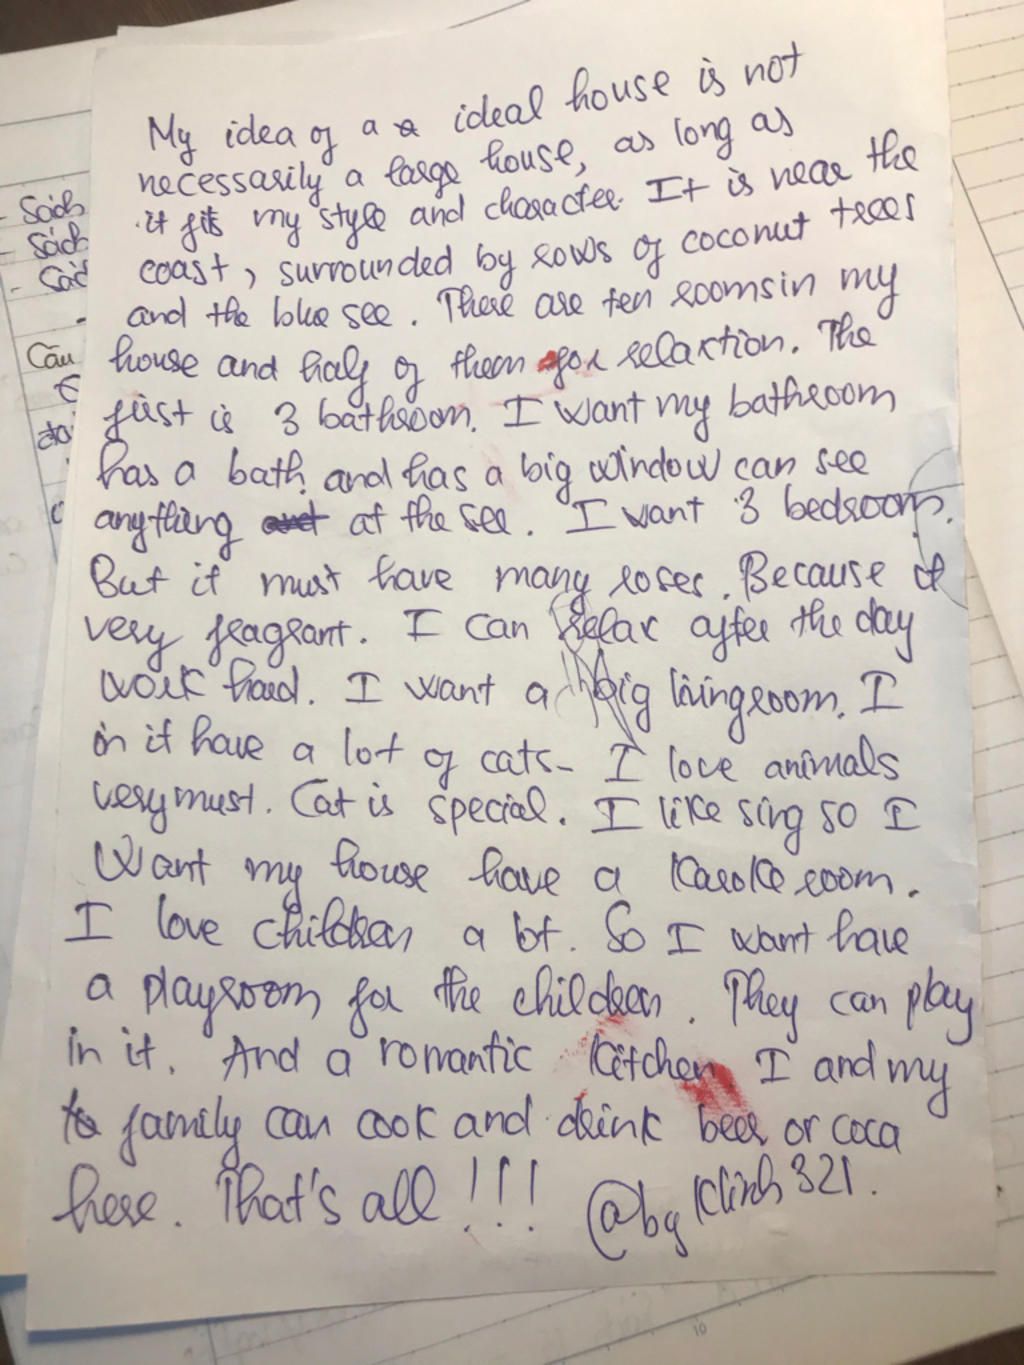 My idea of a a ideal house is not
necessarily a large house, as long as
it fits my style and character. It is near the
coast, surrounded by rows of coconut trees
and the blue see. There are ten rooms in my
house and half of them for relaxtion. The
first is 3 bathroom. I want my bathroom
has a bath and has a big window can see
anything at the see. I want 3 bedroom.
But it must have many roses. Because it
very fragrant. I can relax after the day
work hard. I want a big livingroom. I
in it have a lot of cats- I love animals
very must. Cat is special. I like sing so I
Want my house have a Karoke room.
I love children a lot. So I want have
a playroom for the children. They can play
in it. And a romantic Kitchen I and my
family can cook and drink beer or coca
here. That's all!!! @by Klinh321.
- Sách
- Sách
- Sác
Câu
10